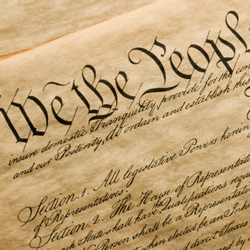 We the People
insure domestic Tranquility, provide for the com
and our Posterity, do ordain and establish this
Section. 1. All legislative Powers herein
of Representatives.
Section. 2. The House of Represent
State shall have Qualifications requi
No Person shall be a Representat
when elected, be an Inhabi